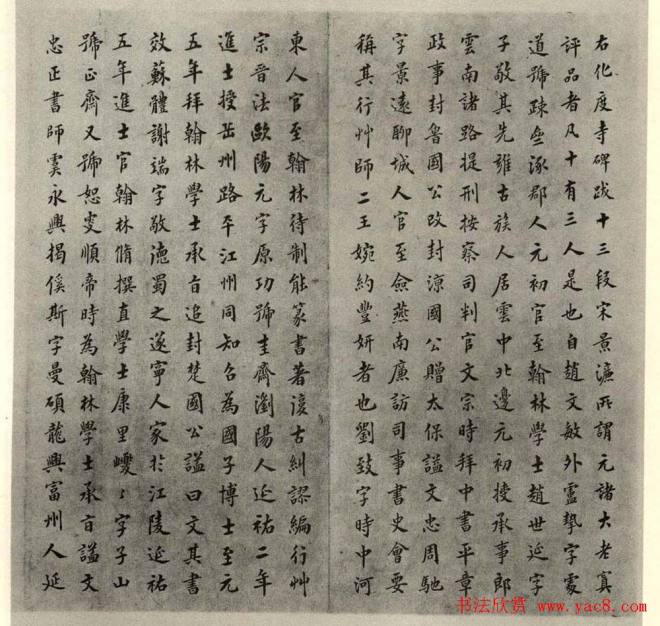 右化度寺碑跋十三段宋景濂所謂元諸大老寘
評品者凡十有三人是也自趙文敏外盧摯字處
道號疎齋涿郡人元初官至翰林學士趙世延字
子敬其先雍古族人居雲中北邊元初授承事郎
雲南諸路提刑按察司判官文宗時拜中書平章
政事封魯國公改封涼國公贈太保謚文忠周馳
字景遠聊城人官至僉燕南廉訪司事書史會要
稱其行艸師二王婉約豐妍者也劉致字時中河
東人官至翰林待制能篆書著復古糾謬編行艸
宗晉法歐陽元字原功號圭齋瀏陽人延祐二年
進士授岳州路平江州同知召為國子博士至元
五年拜翰林學士承旨追封楚國公謚曰文其書
效蘇體謝端字敬德蜀之遂寧人家於江陵延祐
五年進士官翰林脩撰直學士康里巙〻字子山
號正齋又號恕叟順帝時為翰林學士承旨謚文
忠正書師虞永興揭傒斯字曼碩龍興富州人延
书法欣赏 www.yac8.com